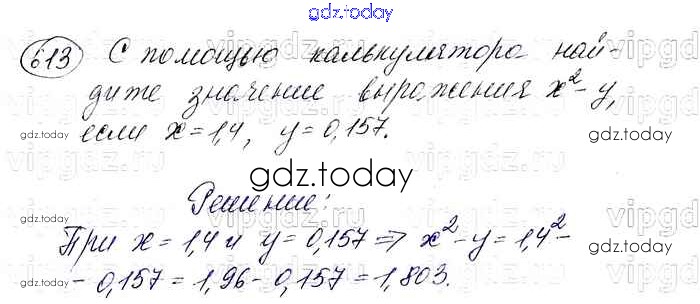 gdz.today
613 С помощью калькулятора най-
дите значение выражения x²-y,
если x=1,4, y=0,157.
gdz.today
gdz.today
gdz.today
Решение:
При x=1,4 и y=0,157 => x²-y=1,4²-
-0,157=1,96-0,157=1,803.
gdz.today
gdz.today